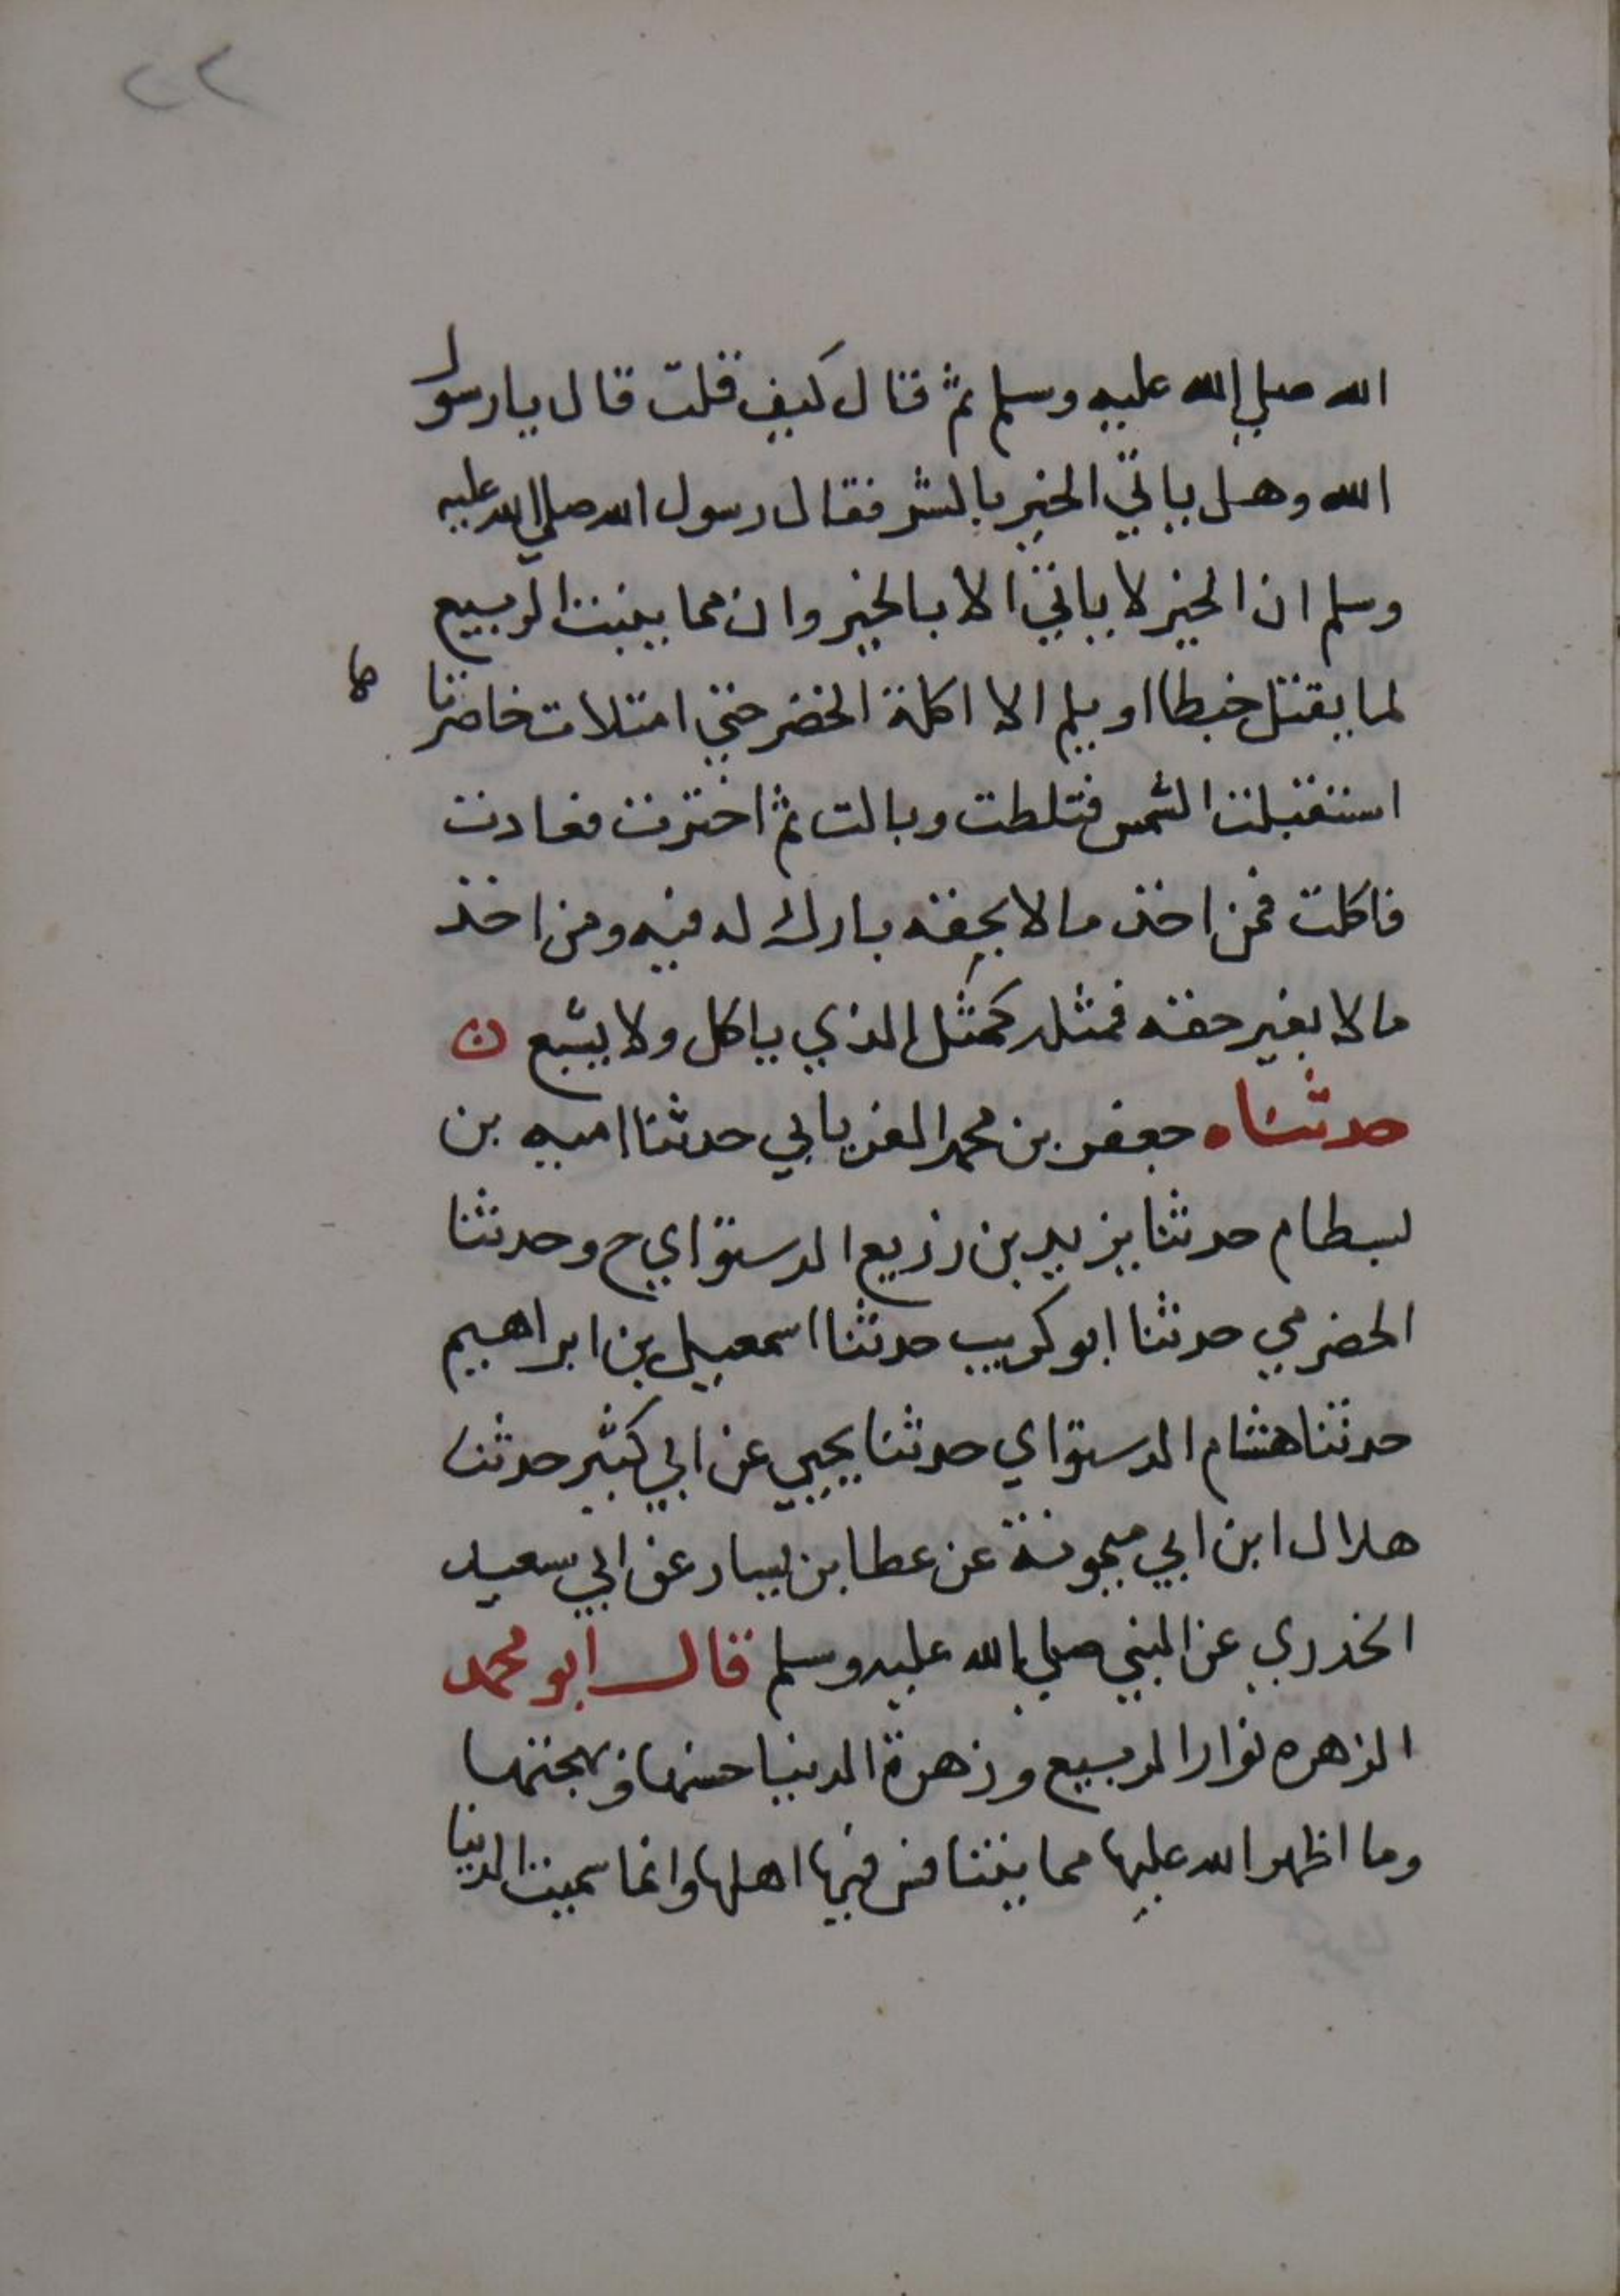 ٢٢
الله صلي الله عليه وسلم ثم قال كيف قلت قال يا رسول
الله وهل ياتي الخير بالشر فقال رسول الله صلي الله عليه
وسلم ان الخير لا ياتي الا بالخير وان مما ينبت الربيع
لما يقتل خبطا او يلم الا اكلة الخضر حتي امتلات خاصرتا
ها
استقبلت الشمس فثلطت وبالت ثم اخترت فعادت
فاكلت فمن اخذ مالا بحقه بارك له فيه ومن اخذ
مالا بغير حقه فمثله كمثل الذي ياكل ولا يشبع ن
حدثناه جعفر بن محمد الفريابي حدثنا اميه بن
بسطام حدثنا يزيد بن زريع الدستواي ح وحدثنا
الحضرمي حدثنا ابو كريب حدثنا اسمعيل بن ابراهيم
حدثنا هشام الدستواي حدثنا يحيي عن ابي كثير حدثنا
هلال ابن ابي ميمونة عن عطا بن يسار عن ابي سعيد
الخدري عن النبي صلي الله عليه وسلم قال ابو محمد
الزهره نوار الربيع وزهرة الدنيا حسنها وبهجتها
وما اظهر الله عليها مما يتنافس فيها اهلها وانما سميت الدنيا